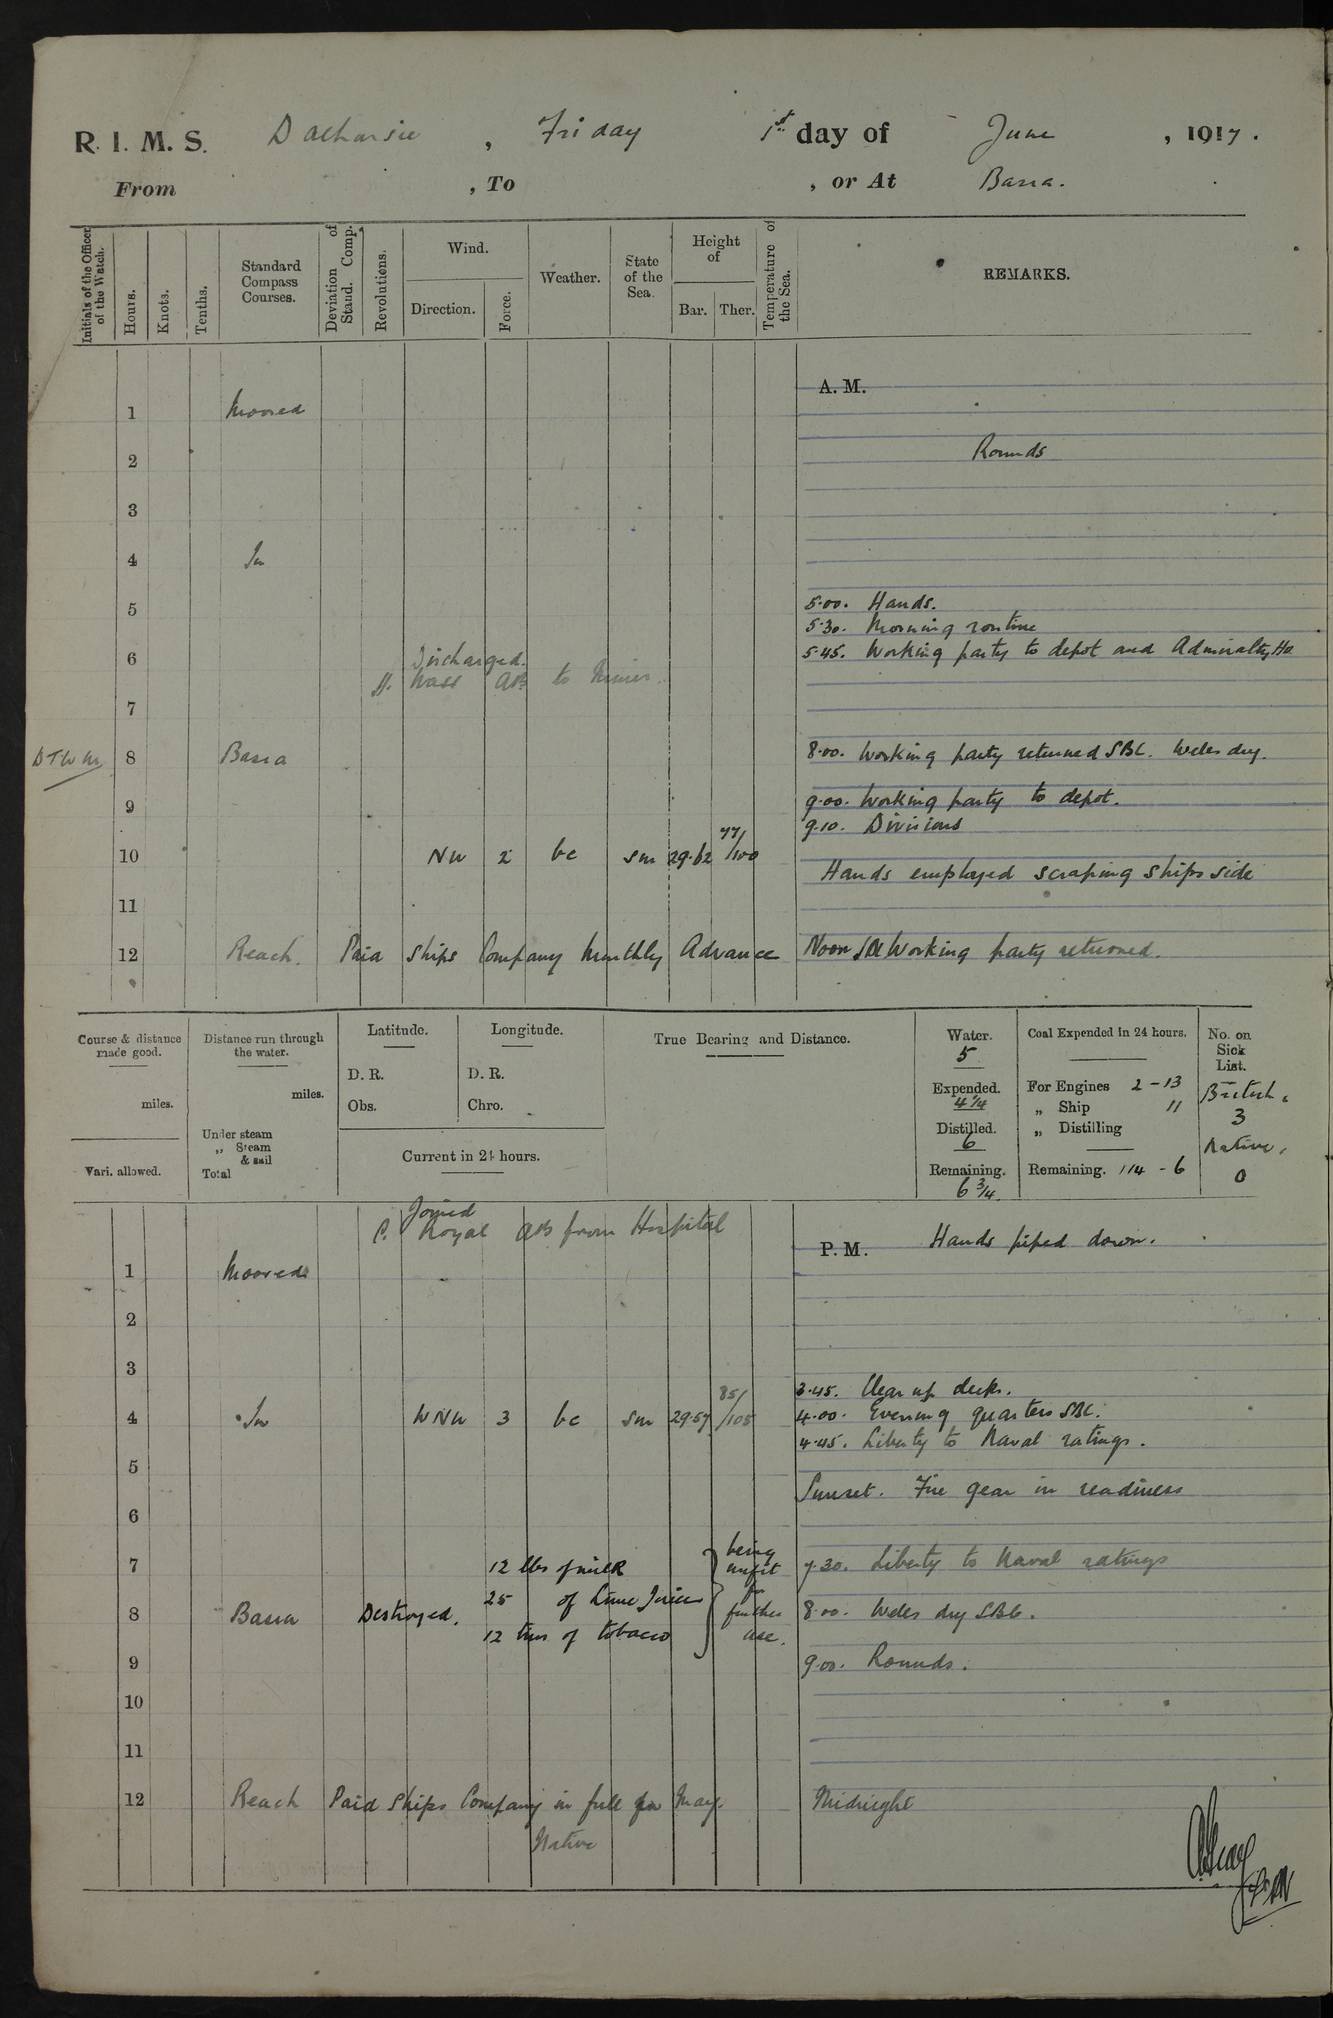 R. I. M. S. Dalhousie, Friday 1st day of June, 1917.
From , To , or At Basra.
Initials of the Officer of the Watch.
Hours.
Knots.
Tenths.
Standard Compass Courses.
Deviation of Stand. Comp.
Revolutions.
Wind.
Direction.
Force.
Weather.
State of the Sea.
Height of
Bar.
Ther.
Temperature of the Sea.
REMARKS.
A. M.
1 Moored
2 Rounds
3
4 In
5 5.00. Hands.
5.30. Morning routine
6 5.45. Working party to depot and Admiralty Ho
Discharged.
H. AB to
7
8 Basra 8.00. Working party returned SBC. Weles dry.
9 9.00. Working party to depot.
9.10. Divisions
10 NW 2 bc sm 29.62 77/100
Hands employed scraping ships side
11
12 Reach. Paid Ships Company Monthly Advance Noon Working party returned.
Course & distance made good.
miles.
Vari. allowed.
Distance run through the water.
miles.
Under steam
„ Steam & sail
Total
Latitude.
D. R.
Obs.
Longitude.
D. R.
Chro.
Current in 24 hours.
True Bearing and Distance.
Water.
5
Expended.
4¼
Distilled.
6
Remaining.
6¾
Coal Expended in 24 hours.
For Engines 2-13
„ Ship 11
„ Distilling
Remaining. 114-6
No. on Sick List.
British,
3
Native,
0
Joined
C. Royal AB from Hospital
P. M. Hands piped down.
1 Moored
2
3
3.45. Clear up decks.
4 In WNW 3 bc sm 29.57 85/105 4.00. Evening quarters SBC.
4.45. Liberty to Naval ratings.
5
Sunset. Fire gear in readiness
6
7 7.30. Liberty to Naval ratings
12 lbs of milk
8 Basra Destroyed. 25 of Lime Juice being unfit for further use. 8.00. Weles dry SBC.
12 tins of tobacco
9 9.00. Rounds.
10
11
12 Reach Paid Ships Company in full for May Midnight
Native